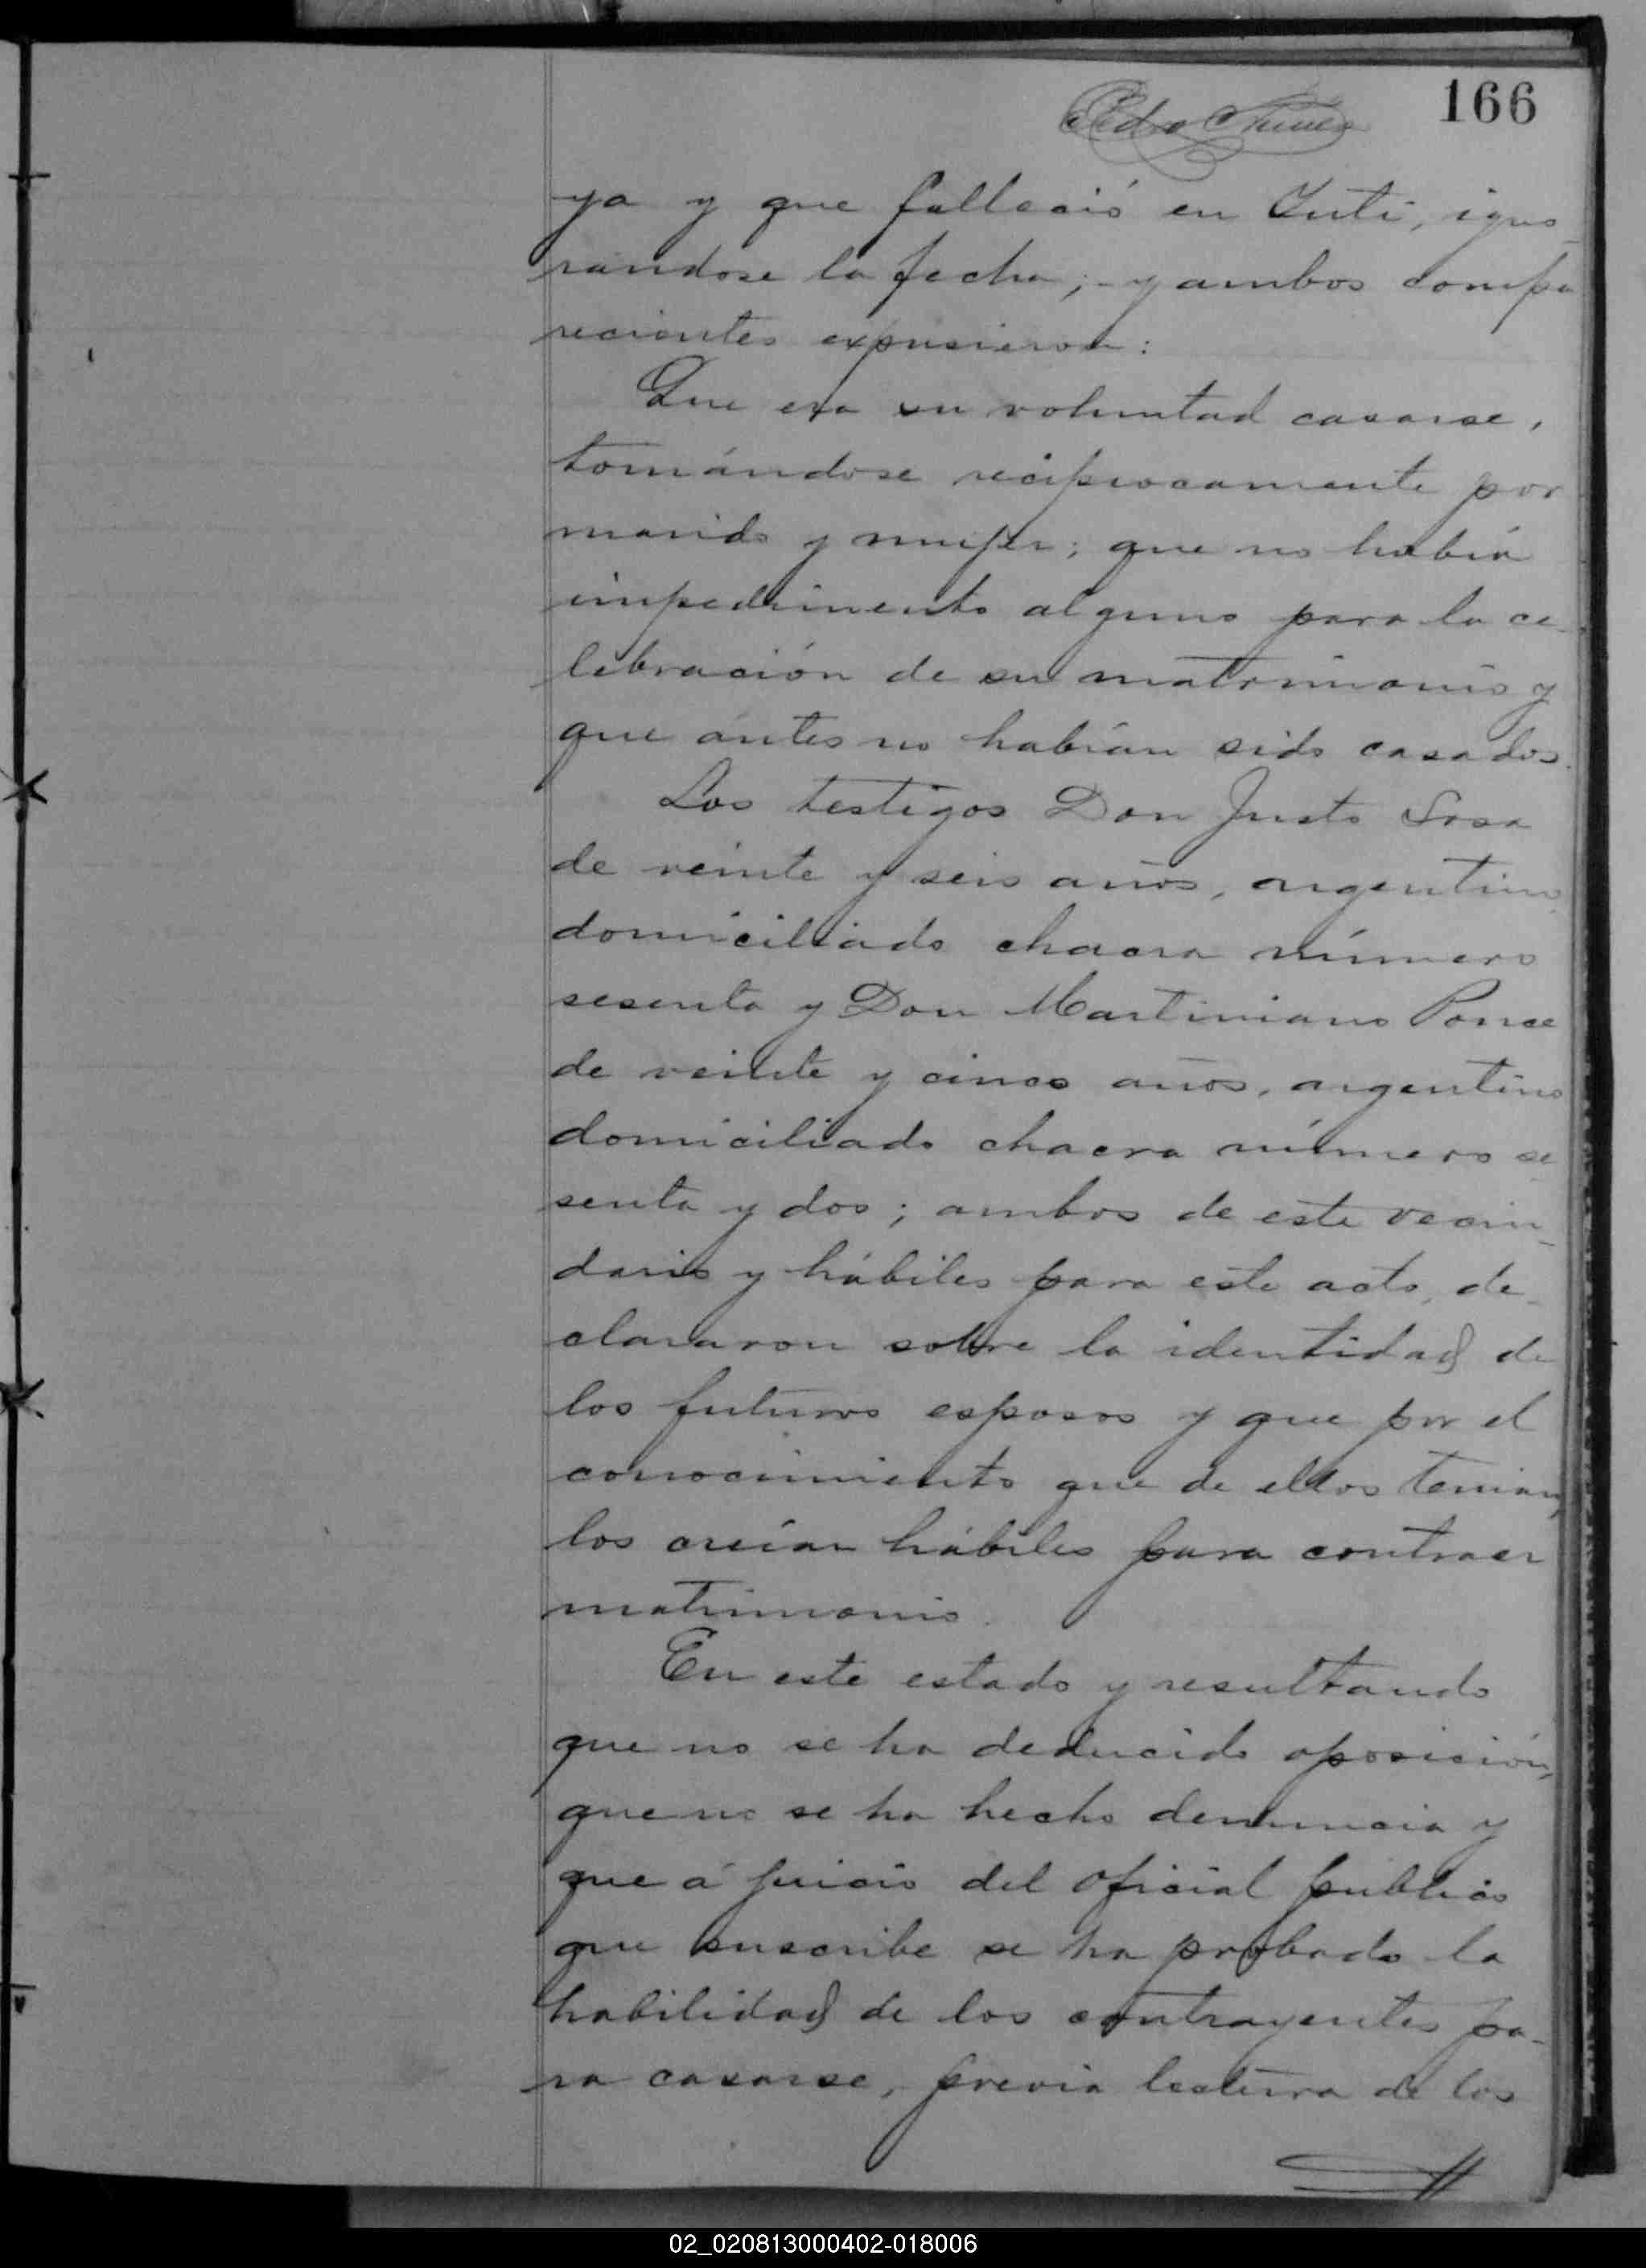 166
Pedro Nuñez
ya y que falleció en Yuti, igno_
randose la fecha;- y ambos compa
recientes expusieron:
Que era su voluntad casarse,
tomándose reciprocamente por
marido y mujer; que no había
impedimento alguno para la ce_
lebración de su matrimonio y
que ántes no habían sido casados.
Los testigos Don Justo Sosa
de veinte y seis años, argentino
domiciliado chacra número
sesenta y Don Martiniano Ponce
de veinte y cinco años, argentino
domiciliado chacra número se
senta y dos; ambos de este vecin_
dario y hábiles para este acto, de_
claravon sobre la identidad de
los futuros esposos y que por el
conocimiento que de ellos tenian,
los creían hábiles para contraer
matrimonio.
En este estado y resultando
que no se ha deducido oposición,
que no se ha hecho denuncia y
que á juicio del oficial público
que suscribe se ha probado la
habilidad de los contrayentes pa_
ra casarse, previa lectura de los
02_020813000402-018006